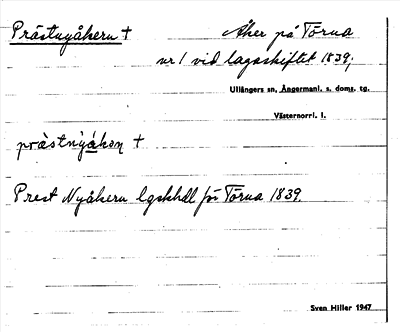 Prästnyåkern † Åker på Törna
nr 1 vid lagaskiftet 1839;
Ullångers sn, Ångermanl. s. doms. tg.
Västernorrl. l.
prästnyåken †
Prest Nyåkern lgskhdl för Törna 1839.
Sven Hiller 1947